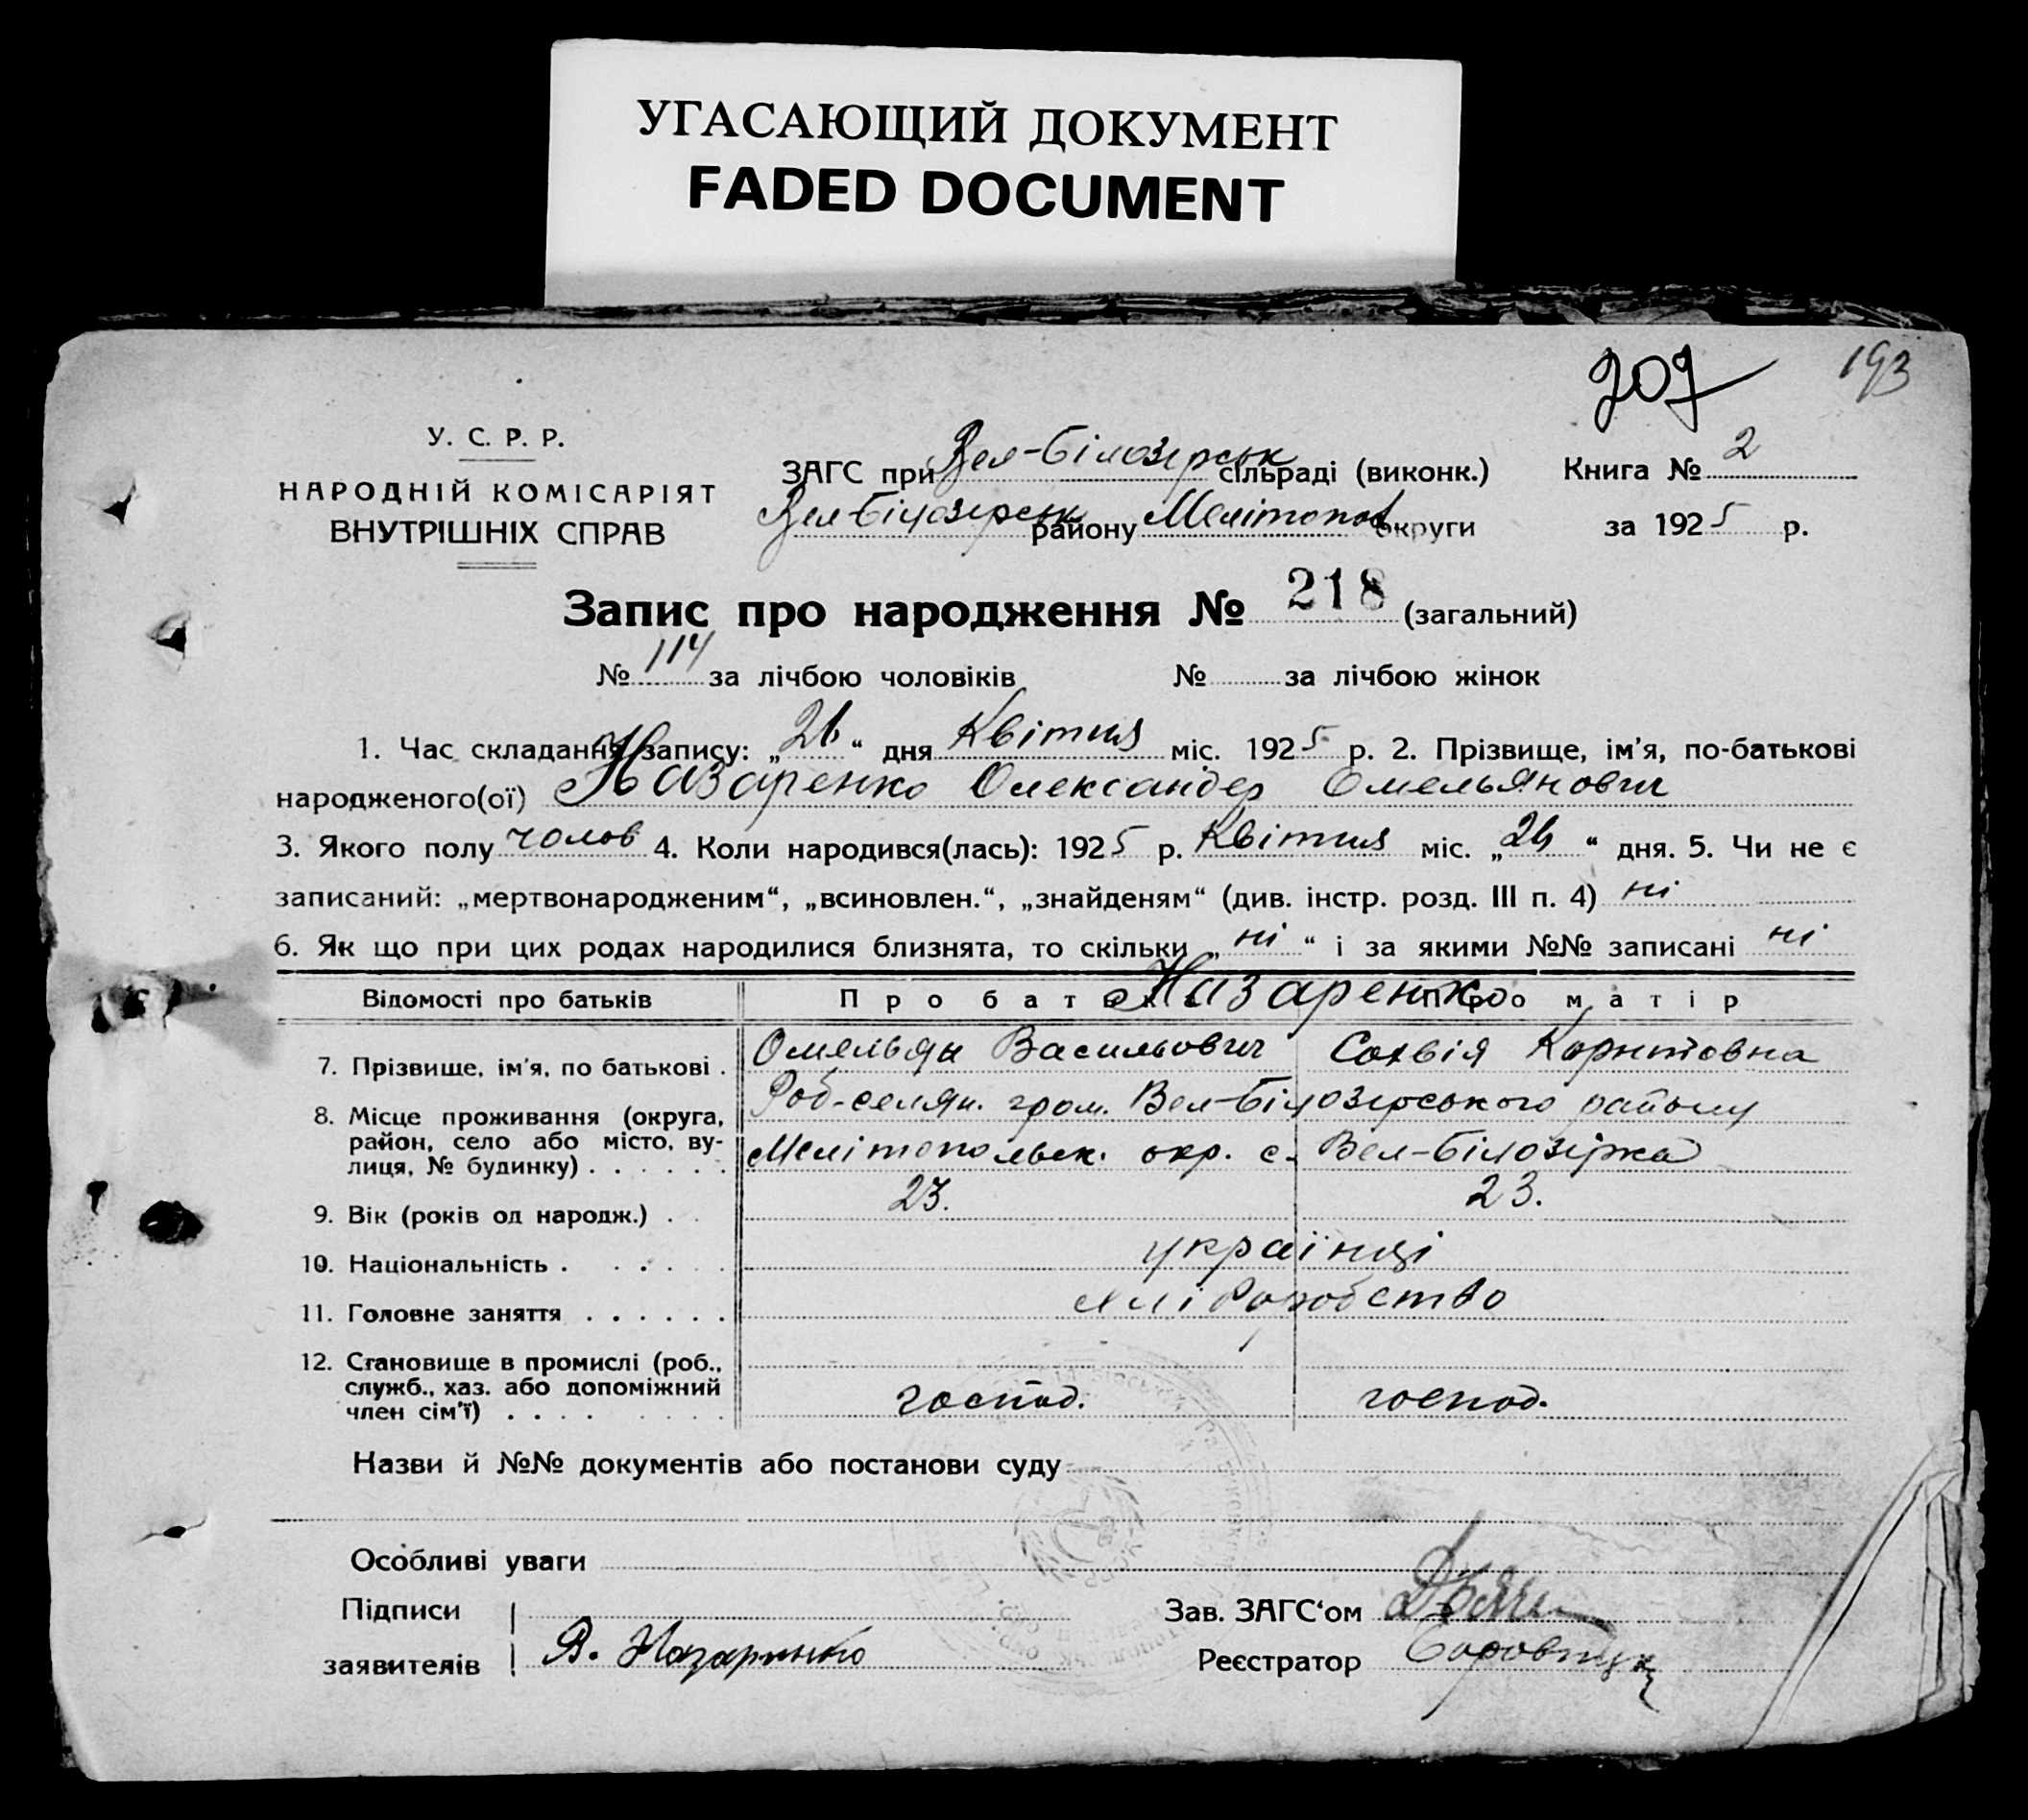 УГАСАЮЩИЙ ДОКУМЕНТ
FADED DOCUMENT
207 193
У. С. Р. Р.
НАРОДНІЙ КОМІСАРІЯТ
ВНУТРІШНІХ СПРАВ
ЗАГС при Вел-Білозерськ сільраді (виконк.) Книга № 2
Вел-Білозерськ району Мелітопол округи за 1925 р.
Запис про народження № 218 (загальний)
№ 114 за лічбою чоловіків № за лічбою жінок
1. Час складання запису: „26“ дня Квітня міс. 1925 р. 2. Прізвище, ім'я, по-батькові
народженого(ої) Назаренко Олександер Омельянович
3. Якого полу чолов 4. Коли народився(лась): 1925 р. Квітня міс. „26“ дня. 5. Чи не є
записаний: „мертвонародженим“, „всиновлен.“, „знайденям“ (див. інстр. розд. III п. 4) ні
6. Як що при цих родах народилися близнята, то скільки „ні“ і за якими №№ записані ні
Відомості про батьків Про батька Про матір
Назаренко
7. Прізвище, ім'я, по батькові . Омельян Васильович Софвія
8. Місце проживання (округа, район, село або місто, вулиця, № будинку) . . . . . . Роб-селян. гром. Вел-Білозерського району
Мелітопольск. окр. с. Вел-Білозірка
9. Вік (років од народж.) . . 23. 23.
10. Національність . . . . . . українці
11. Головне заняття . . . . . .
12. Становище в промислі (роб., служб., хаз. або допоміжний член сім'ї) . . . . господ. господ.
Назви й №№ документів або постанови суду
Особливі уваги
Підписи Зав. ЗАГС‘ом
заявителів В. Назаренко Реєстратор